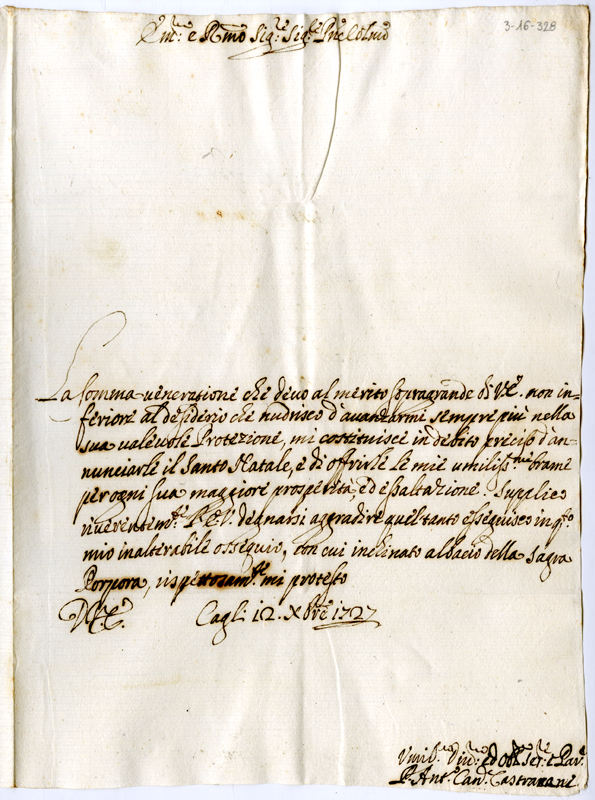 3-16-328
Em.mo e R.mo Sig.r Sig.r Pne Colmo
La somma veneratione che devo al merito sopragrande di V.E. non in-
feriore al desiderio che nudrisco d'avanzarmi sempre più nella
sua valevole Protezione, mi costituisce in debito preciso d'an-
nunciarle il Santo Natale, e di offrirle le mie umiliss.me brame
per ogni sua maggiore prosperità, ed essaltazione. Supplico
riverentem.te l'E.V. degnarsi aggradire quel tanto esseguisco in q.to
mio inalterabile ossequio, con cui inclinato al bacio della sagra
Porpora, rispettosam.te mi protesto
D.V.E. Cagli 12. Xbre 1727
Umil.mo Div.mo ed Obl.mo Ser.e
P. Ant.o Can.co Castracane